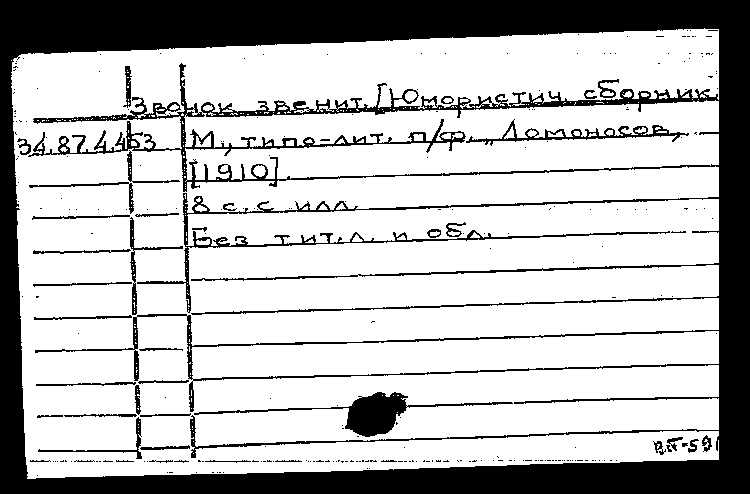 Звонок звенит. [Юмористич. сборник
34.87.4.453 М., типо-лит. п/ф. „Ломоносов,
[1910].
8 с. с илл.
Без тит. л. и обл.
ВП-591